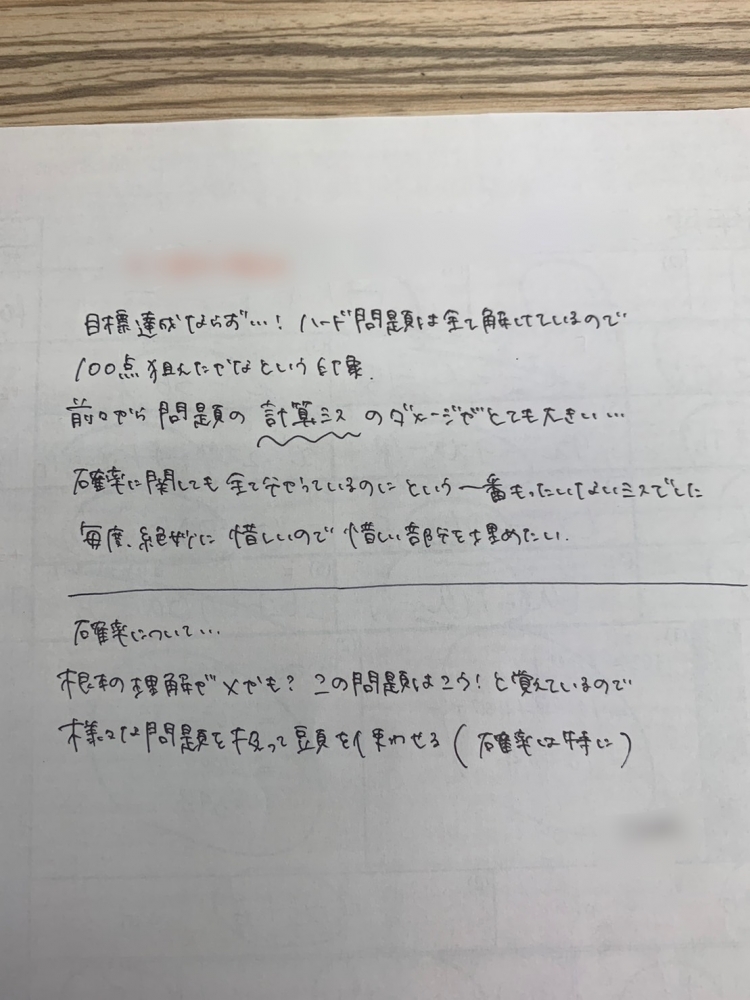 目標達成ならず…！ハード問題は全て解けているので
100点狙えたかなという印象.
前々から問題の計算ミスのダメージがとても大きい…
確率に関しても全て分かっているのにという一番もったいないミスでした
毎度、絶妙に惜しいので惜しい部分を埋めたい.
確率について…
根本の理解が×かも？この問題はこう！と覚えているので
様々な問題を扱って頭を使わせる（確率は特に）